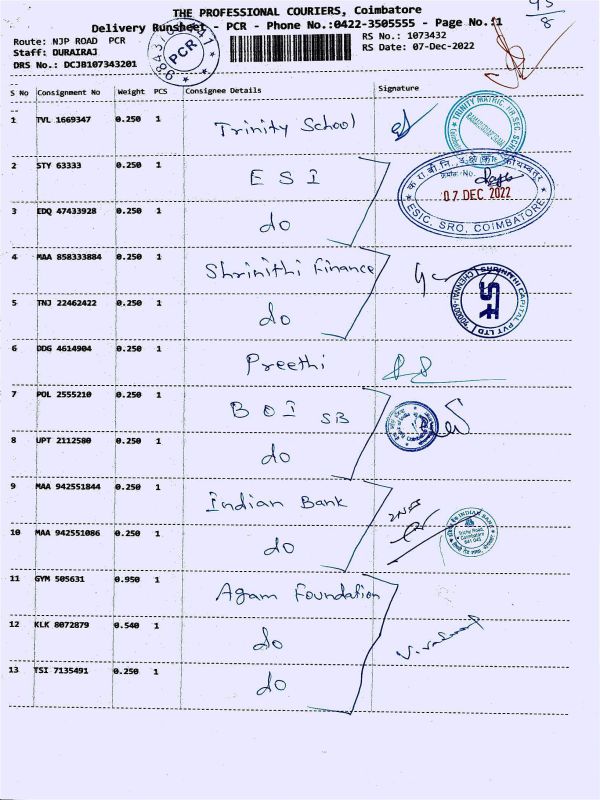 THE PROFESSIONAL COURIERS, Coimbatore
Delivery Runsheet - PCR - Phone No.:0422-3505555 - Page No.:1
Route: NJP ROAD PCR
RS No.: 1073432
Staff: DURAIRAJ
RS Date: 07-Dec-2022
DRS No.: DCJB107343201
PCR
S No Consignment No Weight PCS Consignee Details Signature
1 TVL 1669347 0.250 1 Trinity School
TRINITY MATRIC. HR SEC.
2 STY 63333 0.250 1 E S I
07 DEC 2022
ESIC. SRO. COIMBATORE
3 EDQ 47433928 0.250 1 do
4 MAA 858333884 0.250 1 Shrinithi Finance
SHRINITHI CAPITAL PVT LTD CHENNAI-600004
5 TNJ 22462422 0.250 1 do
6 DDG 4614904 0.250 1 Preethi
7 POL 2555210 0.250 1 B O I SB
8 UPT 2112580 0.250 1 do
9 MAA 942551844 0.250 1 Indian Bank
INDIAN BANK
Trichy Road,
Coimbatore
641 045
10 MAA 942551086 0.250 1 do
11 GYM 505631 0.950 1 Agam Foundation
12 KLK 8072879 0.540 1 do
13 TSI 7135491 0.250 1 do